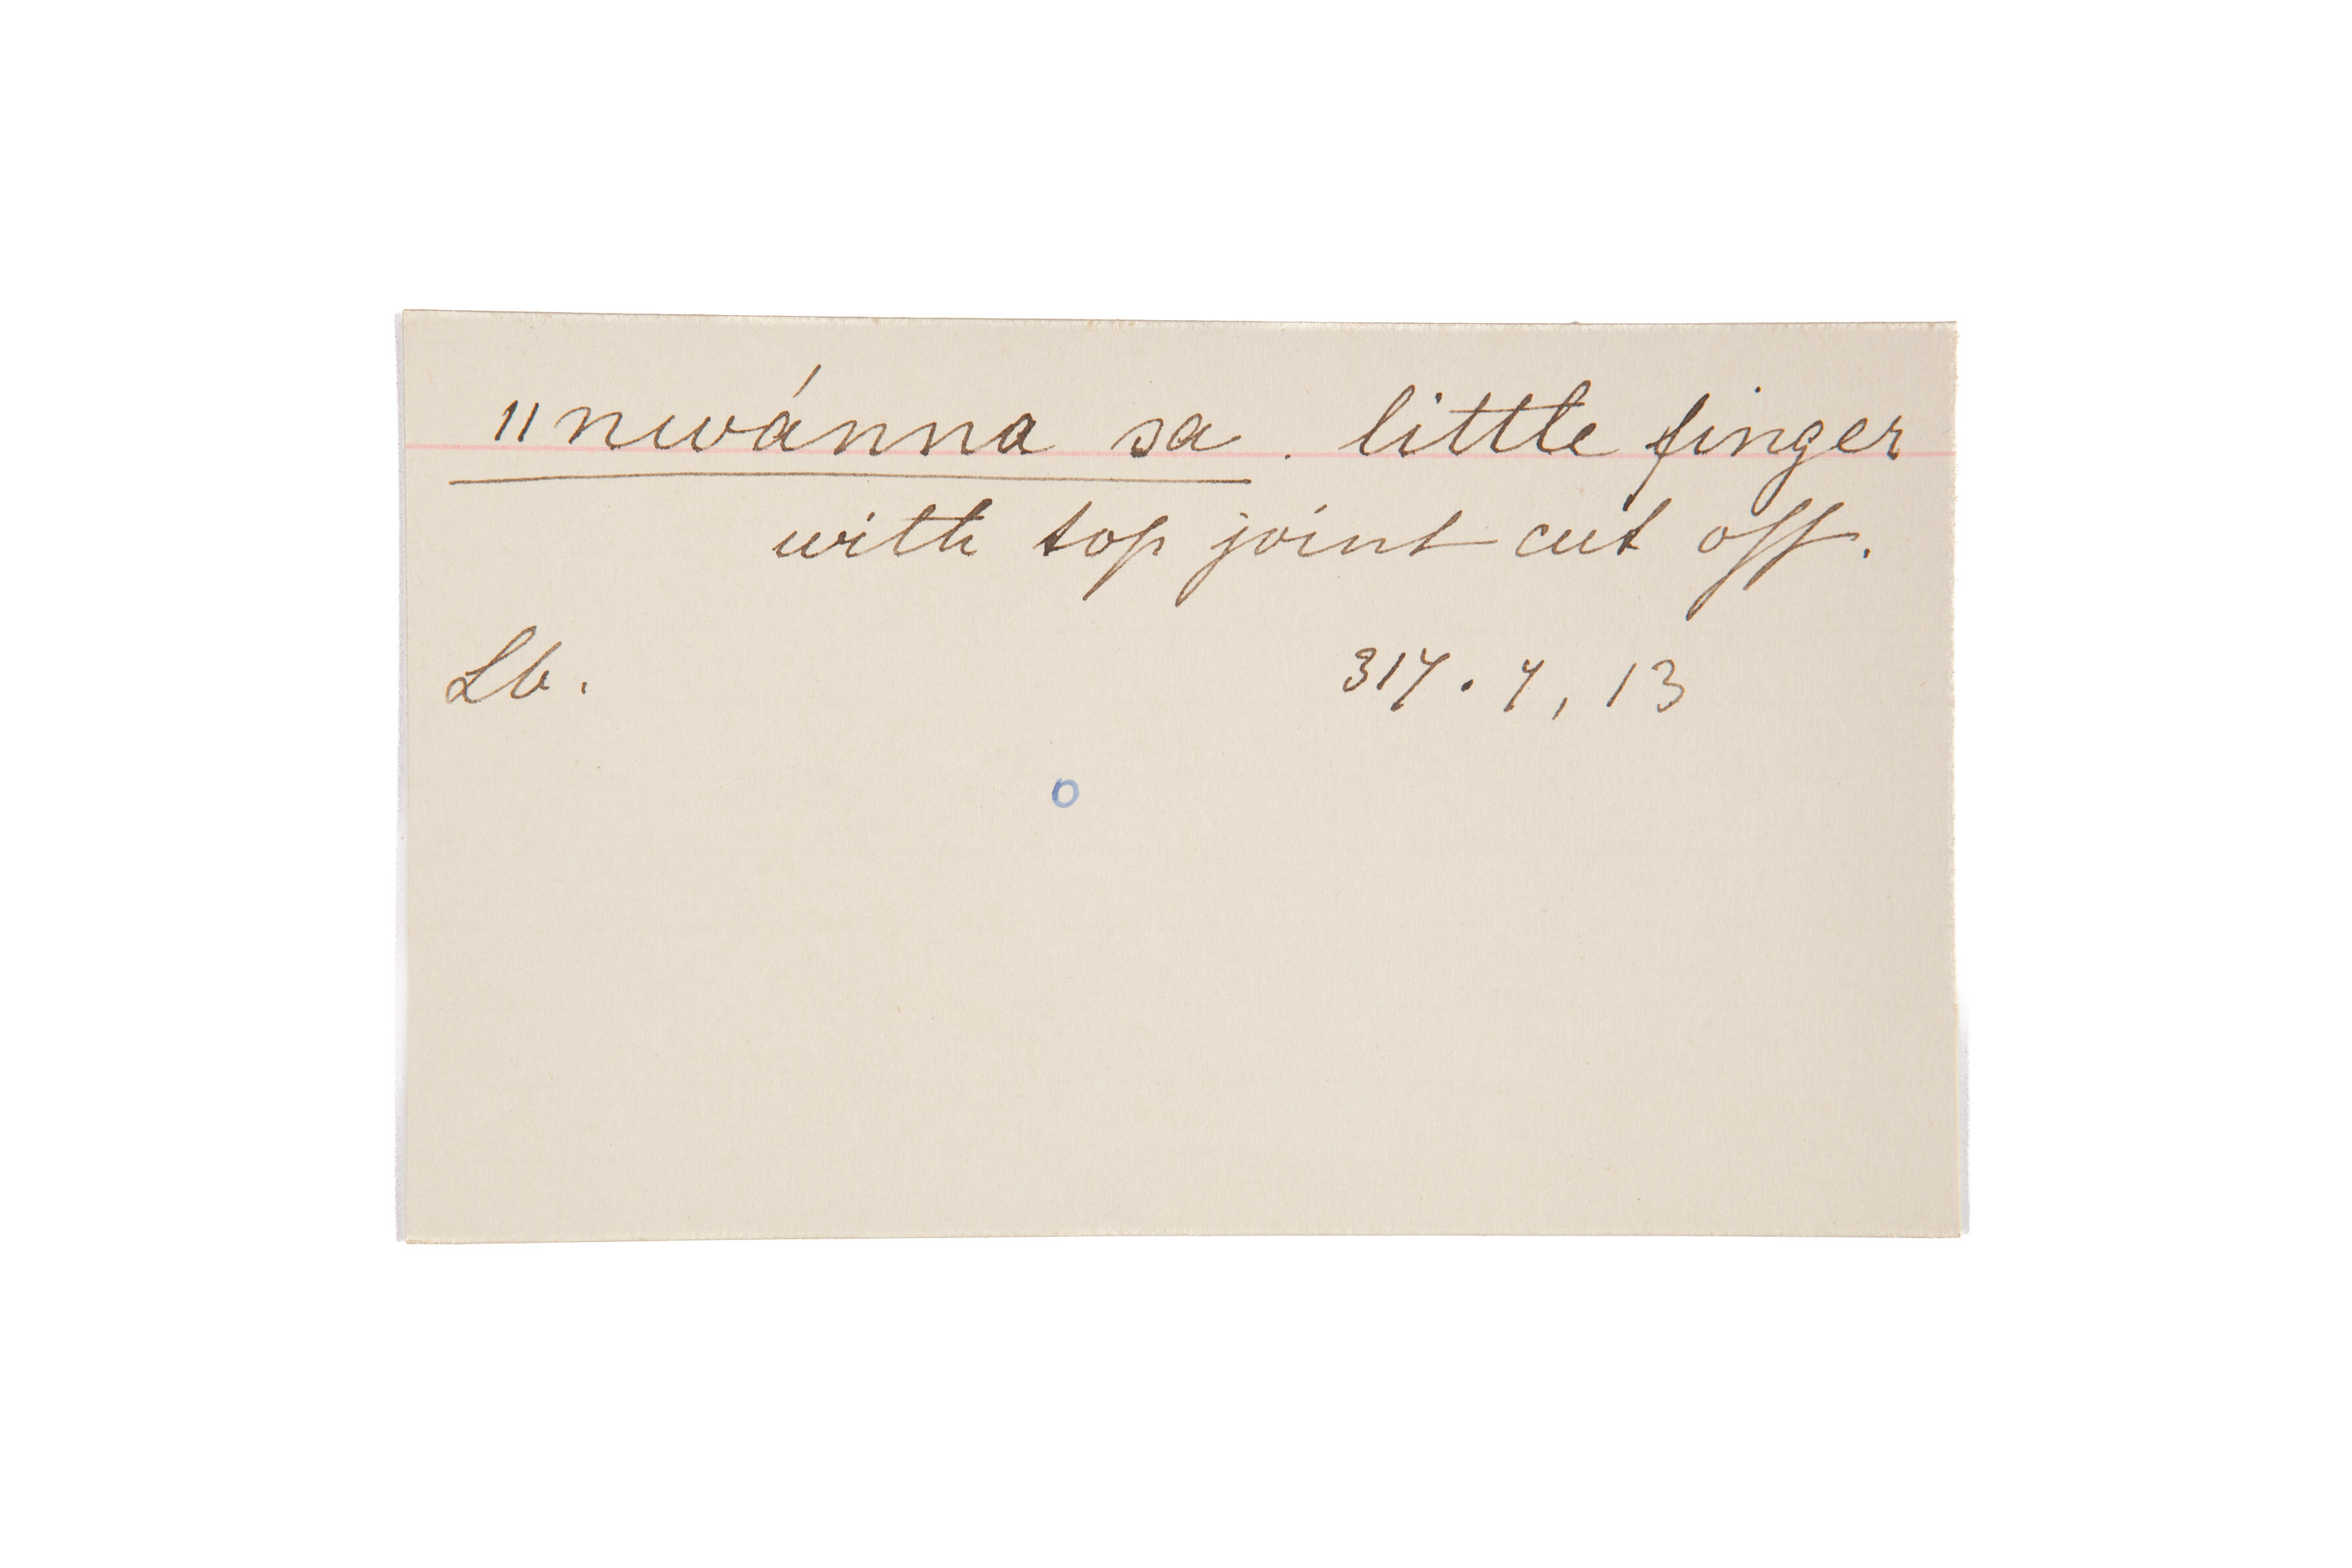 ǁnwánna sa. little finger
with top joint cut off.
Lb. 317. 7, 13
o